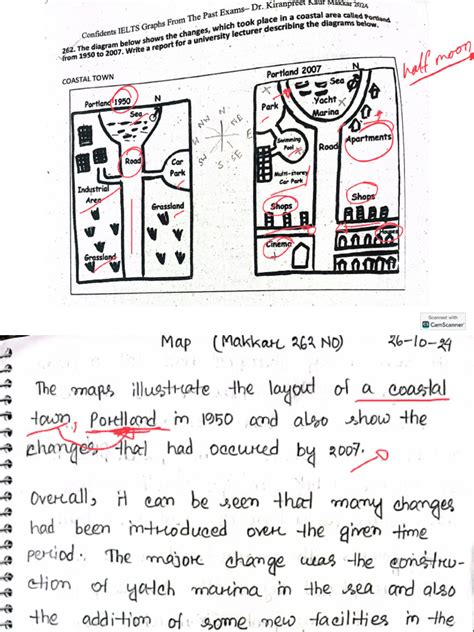 Confidents IELTS Graphs From The Past Exams– Dr. Kiranpreet Kaur Makkar 2024
262. The diagram below shows the changes, which took place in a coastal area called Portland
from 1950 to 2007. Write a report for a university lecturer describing the diagrams below.
half moon
COASTAL TOWN
Portland 1950
N
Sea
Road
Car
Park
Industrial
Area
Grassland
Grassland
N
NW
NE
W
E
SW
S
SE
Portland 2007
N
Sea
Park
Yacht
Marina
Swimming
Pool
Road
Apartments
Multi-storey
Car Park
Shops
Shops
Cinema
Scanned with
CS CamScanner
Map (Makkar 262 NO) 26-10-24
The maps illustrate the layout of a coastal
town, Portland in 1950 and also show the
changes that had occured by 2007.
Overall, it can be seen that many changes
had been introduced over the given time
period. The major change was the constru-
ction of yatch marina in the sea and also
the addition of some new facilities in the